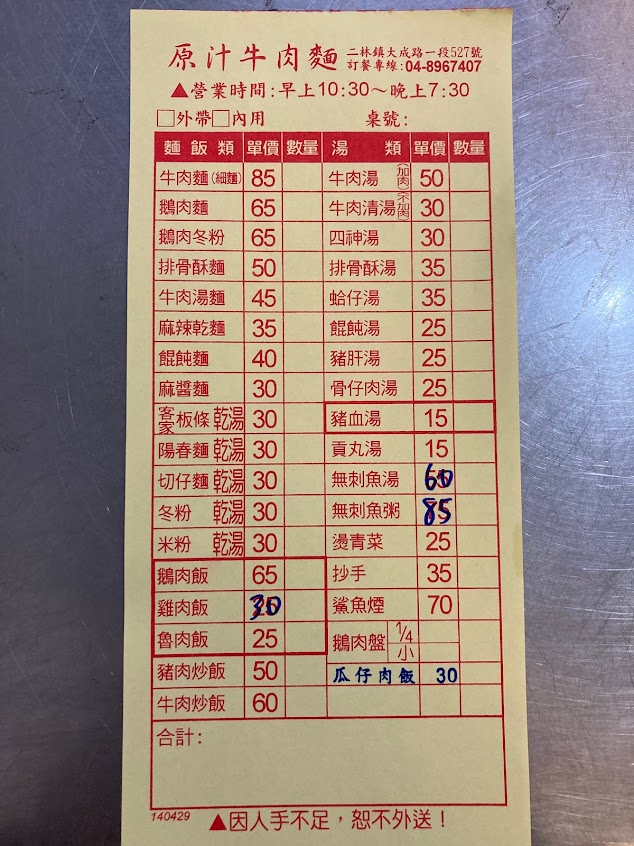 原汁牛肉麵 二林鎮大成路一段527號
訂餐專線:04-8967407
▲營業時間:早上10:30～晚上7:30
□外帶□內用 桌號:
麵飯類 單價 數量 湯類 單價 數量
牛肉麵(細麵) 85 牛肉湯(加肉) 50
鵝肉麵 65 牛肉清湯(不加肉) 30
鵝肉冬粉 65 四神湯 30
排骨酥麵 50 排骨酥湯 35
牛肉湯麵 45 蛤仔湯 35
麻辣乾麵 35 餛飩湯 25
餛飩麵 40 豬肝湯 25
麻醬麵 30 骨仔肉湯 25
客家板條 乾湯 30 豬血湯 15
陽春麵 乾湯 30 貢丸湯 15
切仔麵 乾湯 30 無刺魚湯 60
冬粉 乾湯 30 無刺魚粥 85
米粉 乾湯 30 燙青菜 25
鵝肉飯 65 抄手 35
雞肉飯 30 鯊魚煙 70
魯肉飯 25 鵝肉盤 1/4 小
豬肉炒飯 50 瓜仔肉飯 30
牛肉炒飯 60
合計:
140429 ▲因人手不足，恕不外送！